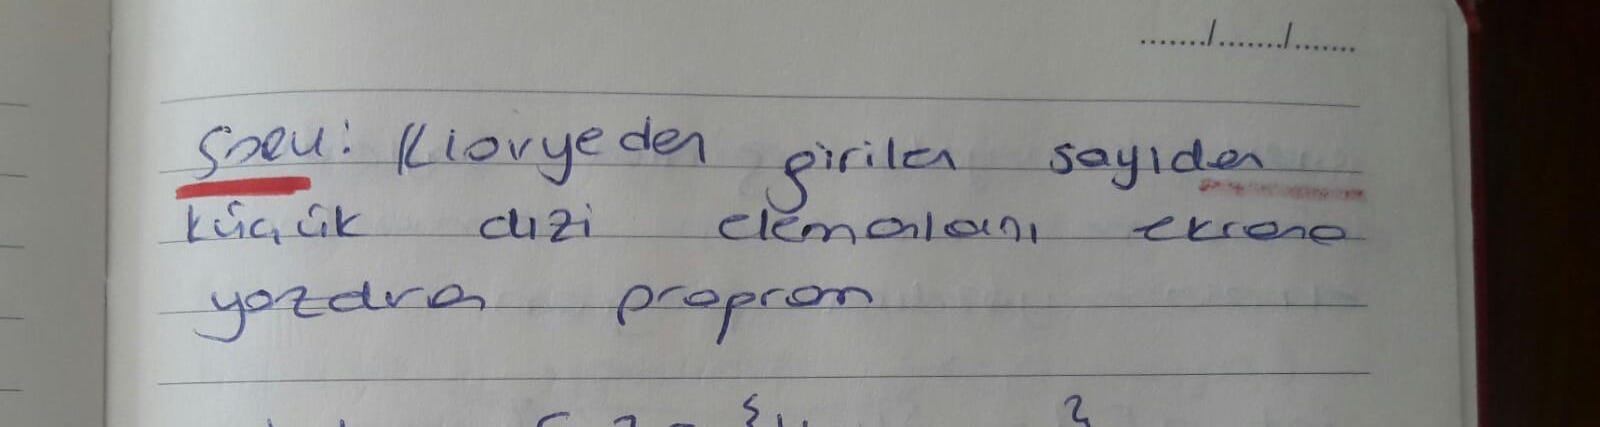 ......./......./.......
Soru: Klavyeden girilen sayıdan
küçük dizi elemanlarını ekrana
yazdıran program